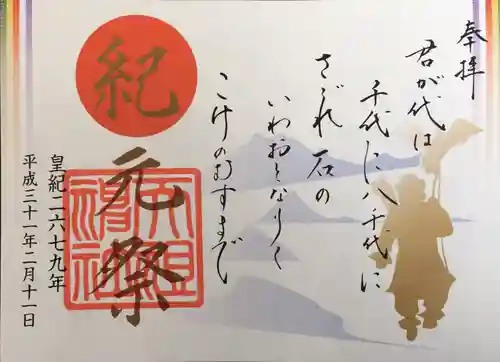 奉拝
君が代は
千代に八千代に
さゞれ石の
いわおとなりて
こけのむすまで
紀元祭
皇紀二六七九年
平成三十一年二月十一日